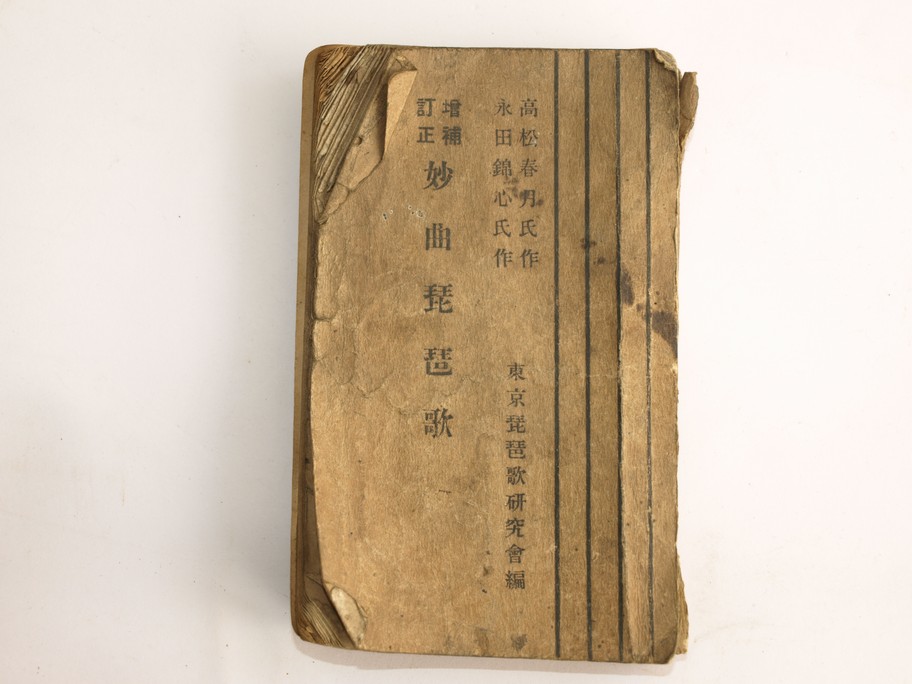 高松春月氏作
永田錦心氏作
東京琵琶歌研究會編
增補
訂正
妙曲琵琶歌